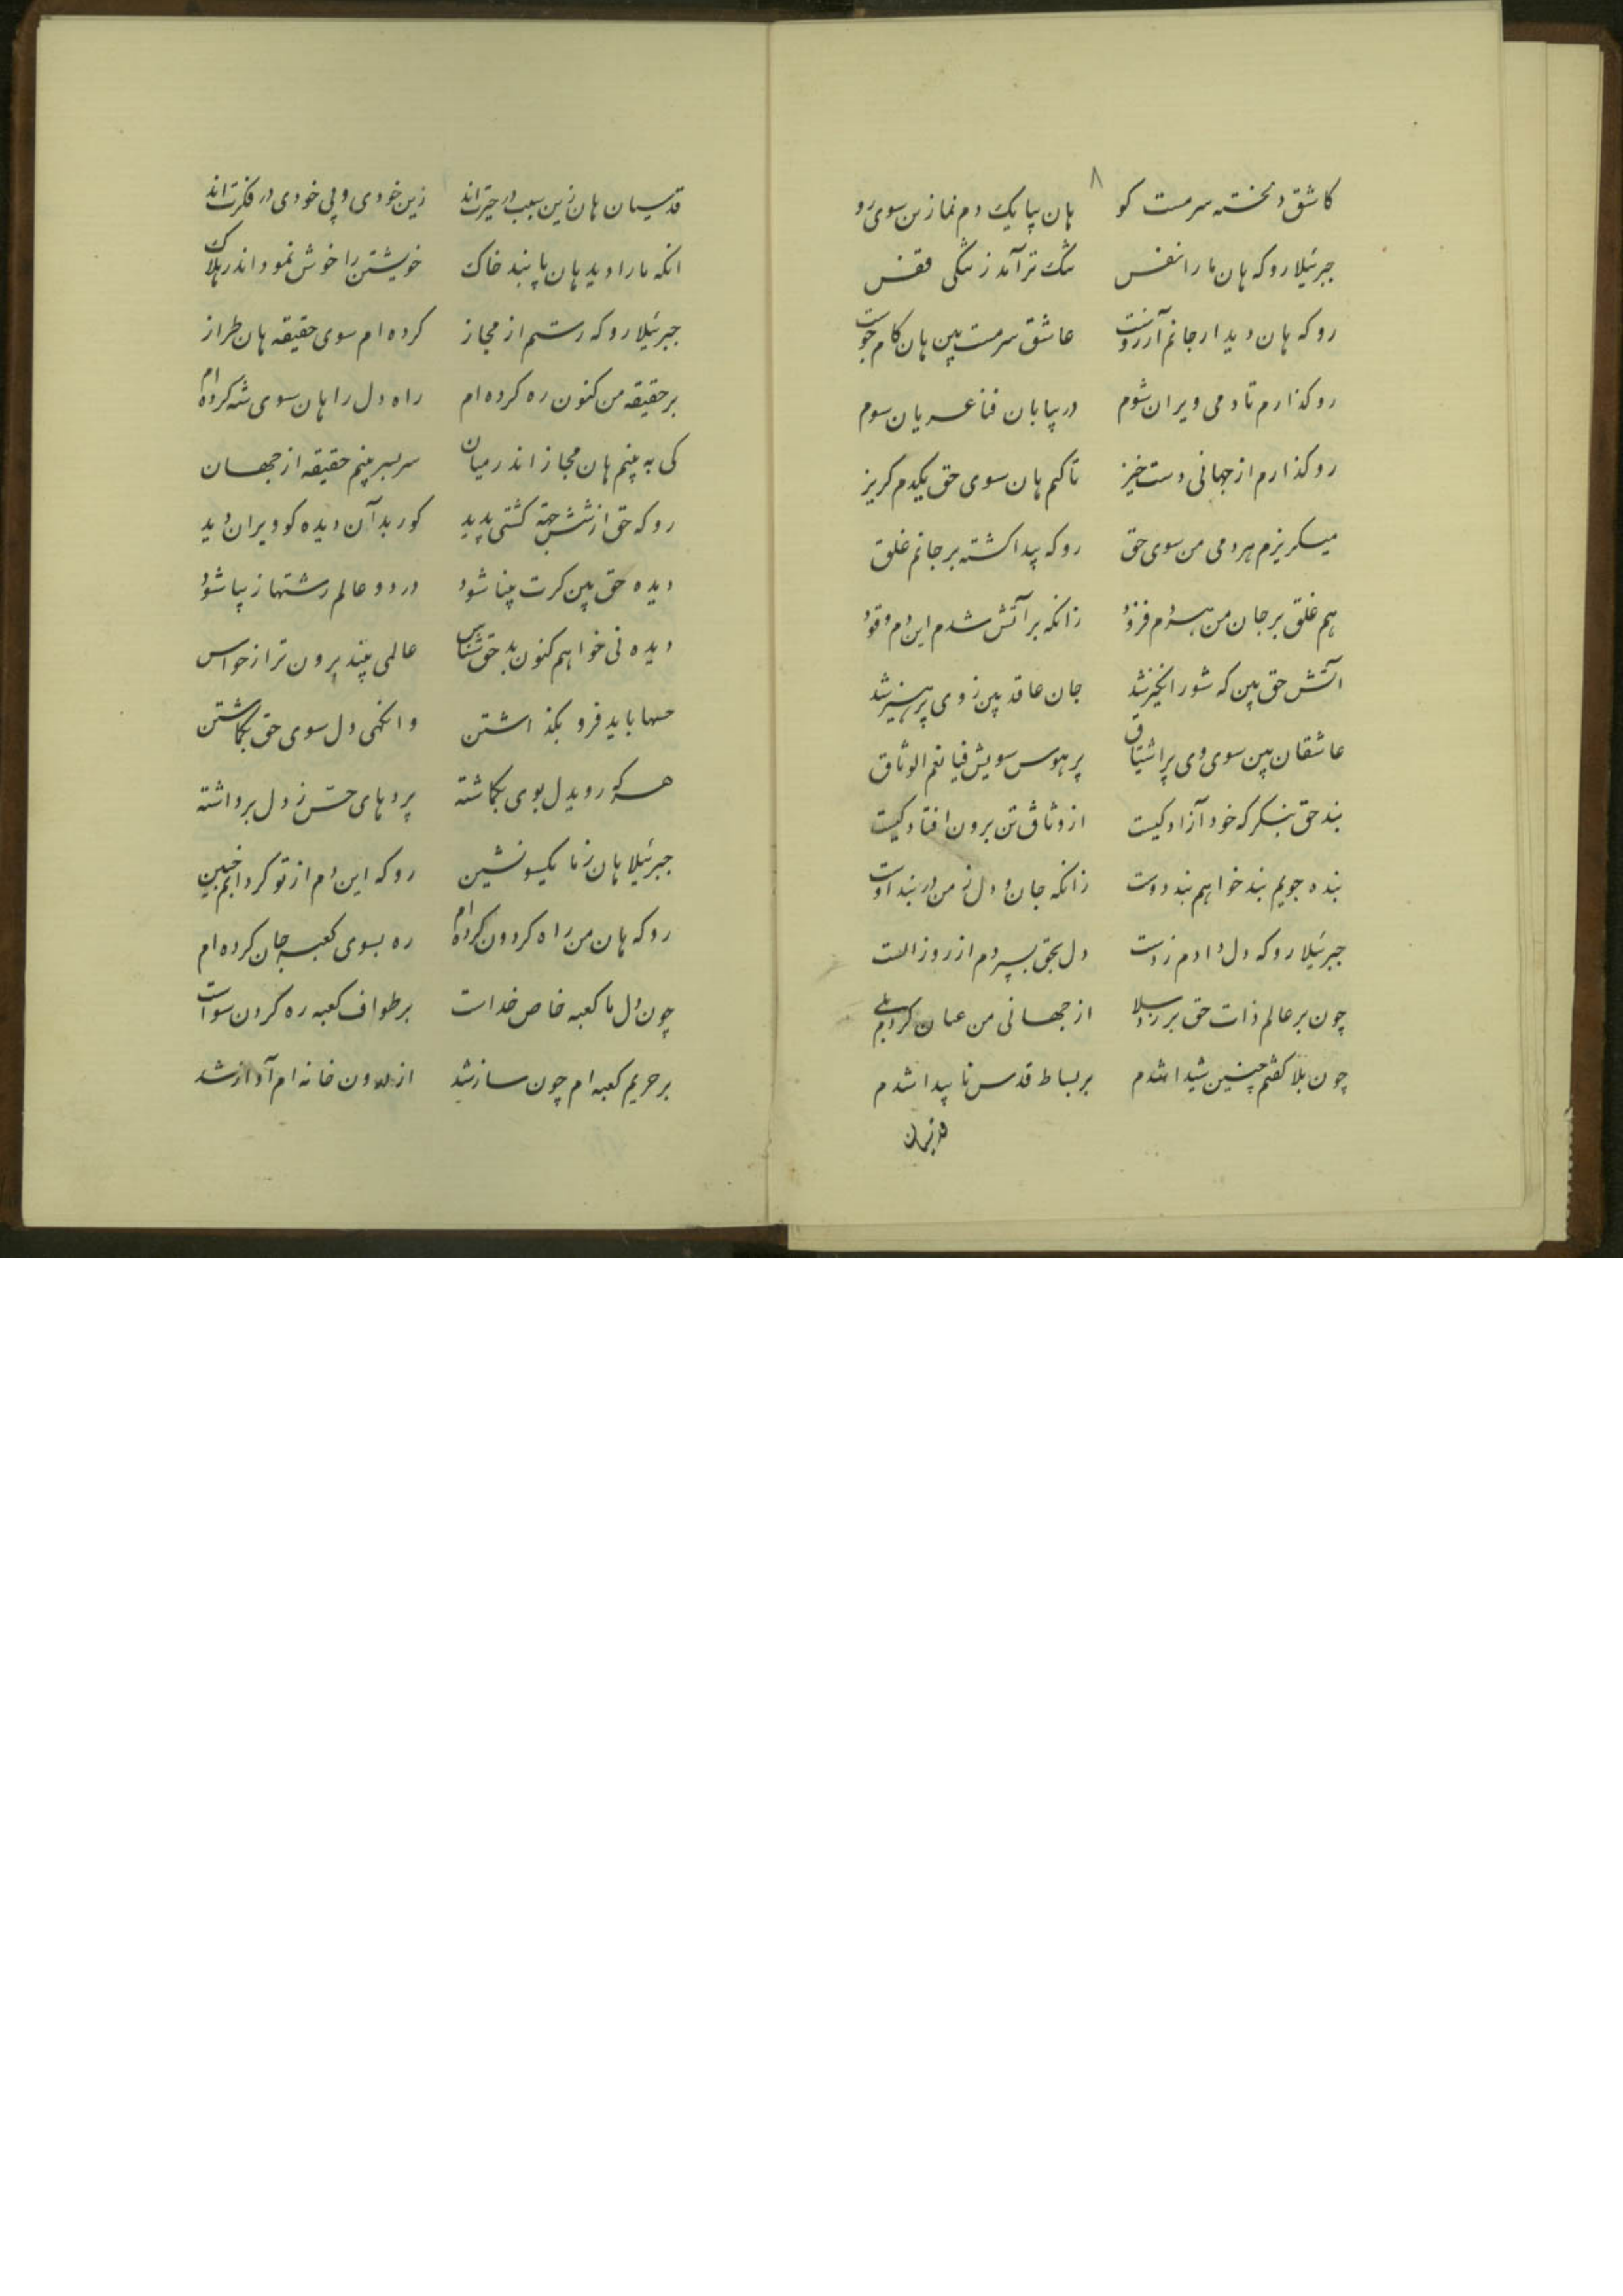 ۸
کاشق دلخسته سرمست کو هان بیا یک دم نما زین سوی رو
جبرئیلا رو که هان ما را نفس تنگ تر آمد ز تنگی قفس
رو که هان دیدار جانم آرزوست عاشق سرمست بین هان کام جوست
رو گذارم تا دمی ویران شوم در بیابان فنا عریان شوم
رو گذارم از جهانی دست خیز تا کنم هان سوی حق یکدم گریز
میگریزم هر دمی من سوی حق رو که پیدا گشته بر جانم غلق
هم غلق بر جان من هر دم فزود زانکه بر آتش شدم این دم وقود
آتش حق بین که شورانگیز شد جان عاقد بین ز وی پرهیز شد
عاشقان بین سوی وی پر اشتیاق پر هوس سویش فیا نعم الوثاق
بند حق بنگر که خود آزاد کیست از وثاق تن برون افتاد کیست
بنده جویم بند خواهم بند دوست زانکه جان و دل ز من در بند اوست
جبرئیلا رو که دل دادم ز دست دل بحق بسپردم از روز الست
چون بر عالم ذات حق بر زد بلا از جهانی من عیان کردم بلی
چون بلا گفتم چنین شیدا شدم بر بساط قدس نا پیدا شدم
قدسیان
قدسیان هان زین سبب در حیرت‌اند زین خودی و بی خودی در فکرت‌اند
انکه ما را دید هان پا بند خاک خویشتن را خوش نمود اندر هلاک
جبرئیلا رو که رستم از مجاز کرده ام سوی حقیقه هان طراز
بر حقیقه من کنون ره کرده ام راه دل را هان سوی شه کرده ام
کی به بینم هان مجاز اندر میان سربسر بینم حقیقه از جهان
رو که حق از شش جهة گشتی پدید کور بد آن دیده کو ویران دید
دیده حق بین گرت بینا شود در دو عالم رشتها ز پیا شود
دیده نی خواهم کنون بد حق شناس عالمی بیند برون تر از حواس
حسها باید فرو بگذاشتن وانگهی دل سوی حق بگماشتن
هر که رو یدل بوی بگماشته پردهای حسّ ز دل برداشته
جبرئیلا هان ز ما یکسو نشین رو که این دم از تو کردابم خبین
رو که هان من راه گردون کرده ام ره بسوی کعبه جان کرده ام
چون دل ما کعبه خاص خداست بر طواف کعبه ره کردن سواست
بر حریم کعبه ام چون ساز شد از درون خانه ام آواز شد